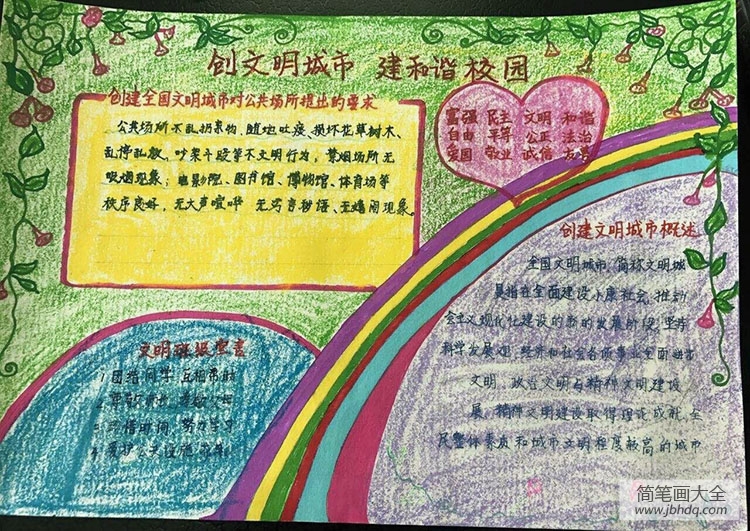 创文明城市 建和谐校园
创建全国文明城市对公共场所提出的要求
公共场所不乱扔杂物、随地吐痰、损坏花草树木、
乱停乱放、吵架斗殴等不文明行为，禁烟场所无
吸烟现象；电影院、图书馆、博物馆、体育场等
秩序良好，无大声喧哗 无污言秽语、无嬉闹现象。
富强 民主 文明 和谐
自由 平等 公正 法治
爱国 敬业 诚信 友善
创建文明城市概述
全国文明城市，简称文明城
是指在全面建设小康社会，推动
会主义现代化建设的新的发展阶段，坚持
科学发展观，经济和社会各项事业全面进步
文明、政治文明与精神文明建设
展，精神文明建设取得 成就，全
民整体素质和城市文明程度较高的城市
文明班级宣言
1 团结同学 互相帮助
2
3 珍惜时间 努力学习
4 爱护公共设施
简笔画大全
www.jbhdq.com